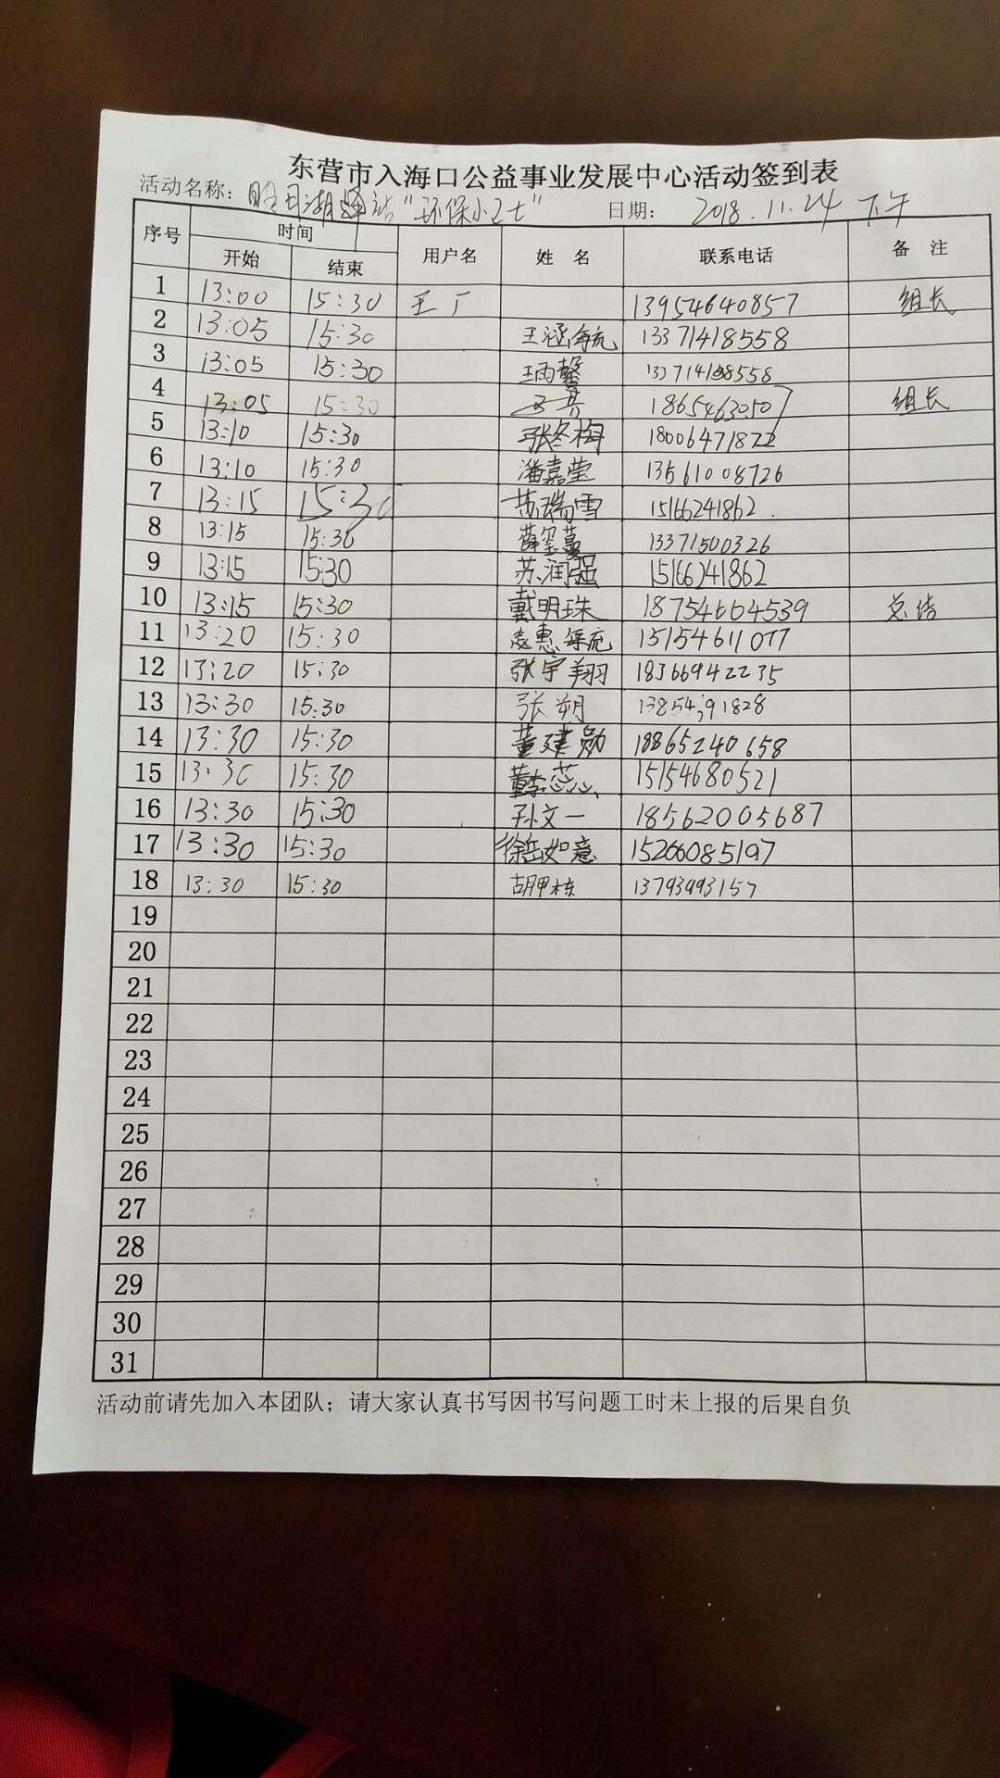 东营市入海口公益事业发展中心活动签到表
活动名称：明月湖驿站“环保小卫士” 日期： 2018.11.24 下午
序号 时间 用户名 姓 名 联系电话 备 注
开始 结束
1 13:00 15:30 王广 13954640857 组长
2 13:05 15:30 王涵 13371418558
3 13:05 15:30 13371418558
4 13:05 15:30 18654630507 组长
5 13:10 15:30 张冬梅 18006471872
6 13:10 15:30 潘嘉莹 13561008726
7 13:15 15:30 苏瑞雪 15166241862.
8 13:15 15:30 薛玺蔓 13371500326
9 13:15 15:30 苏润强 15166241862
10 13:15 15:30 戴明珠 18754664539 总结
11 13:20 15:30 15154611077
12 13:20 15:30 张宇翔 18366942235
13 13:30 15:30 张朔
14 13:30 15:30 董建勋 18865240658
15 13:30 15:30 15154680521
16 13:30 15:30 孙文一 18562005687
17 13:30 15:30 徐岳如意 15266085197
18 13:30 15:30 胡甲栋 13793993157
19
20
21
22
23
24
25
26
27
28
29
30
31
活动前请先加入本团队；请大家认真书写因书写问题工时未上报的后果自负